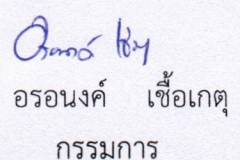 อรอนงค์ เชื้อเกตุ
กรรมการ